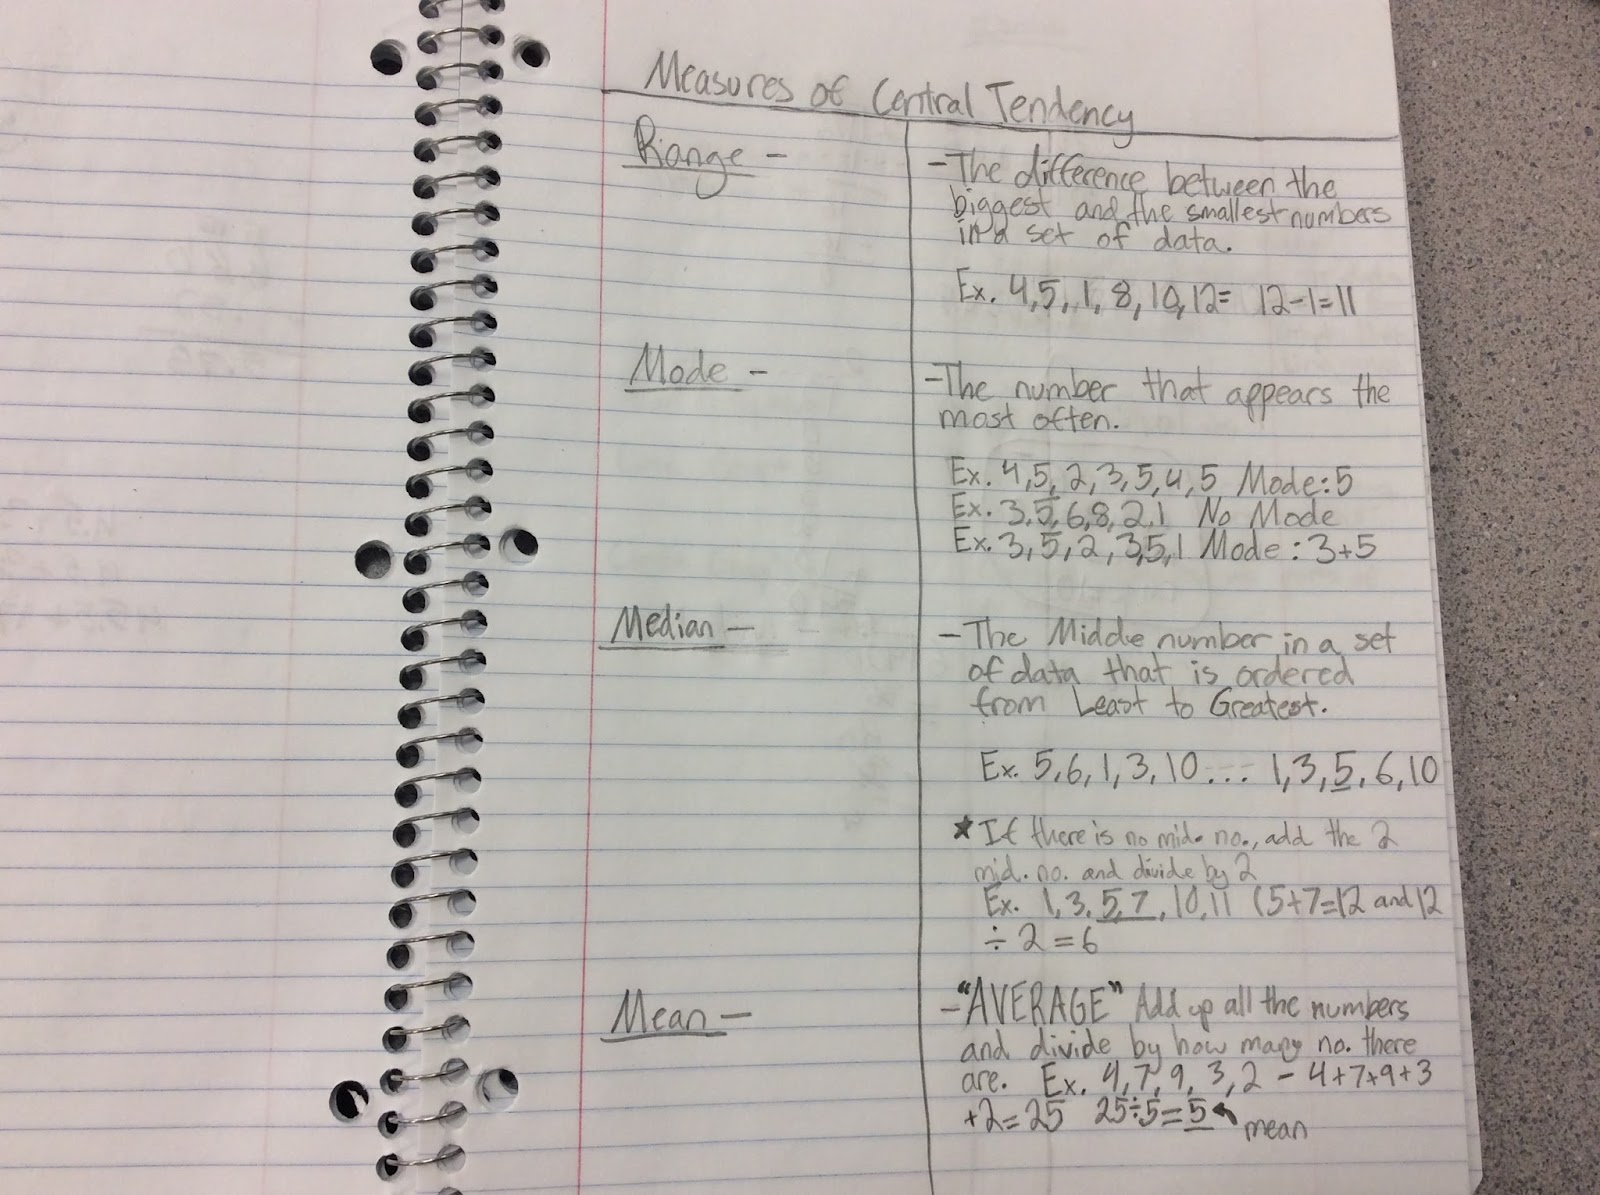 Measures of Central Tendency
Range -
-The difference between the
biggest and the smallest numbers
in a set of data.
Ex. 4,5, 1, 8, 10, 12= 12-1=11
Mode -
-The number that appears the
most often.
Ex. 4,5, 2, 3, 5, 4, 5 Mode: 5
Ex. 3, 5, 6, 8, 2, 1 No Mode
Ex. 3, 5, 2, 3, 5, 1 Mode : 3+5
Median -
- The Middle number in a set
of data that is ordered
from Least to Greatest.
Ex. 5, 6, 1, 3, 10 ... 1, 3, 5, 6, 10
★ If there is no mid. no., add the 2
mid. no. and divide by 2
Ex. 1, 3, 5, 7, 10, 11 (5+7=12 and 12
÷ 2 = 6
Mean -
- "AVERAGE" Add up all the numbers
and divide by how many no. there
are. Ex. 4, 7, 9, 3, 2 - 4+7+9+3
+2=25 25÷5=5
mean